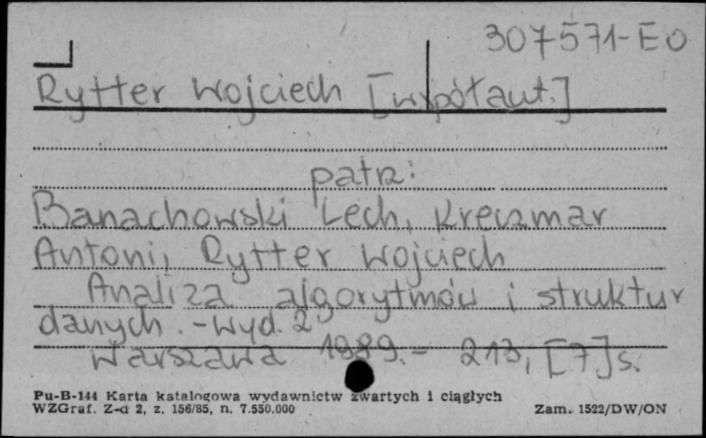 307571-E0
Rytter Wojciech [współaut.]
patrz:
Banachowski Lech, Kreczmar
Antoni, Rytter Wojciech
Analiza algorytmów i struktur
danych. - Wyd. 2
Warszawa 1989. - 213, [7] s.
Pu-B-144 Karta katalogowa wydawnictw zwartych i ciągłych
WZGraf. Z-d 2, z. 156/85, n. 7.550.000 Zam. 1522/DW/ON